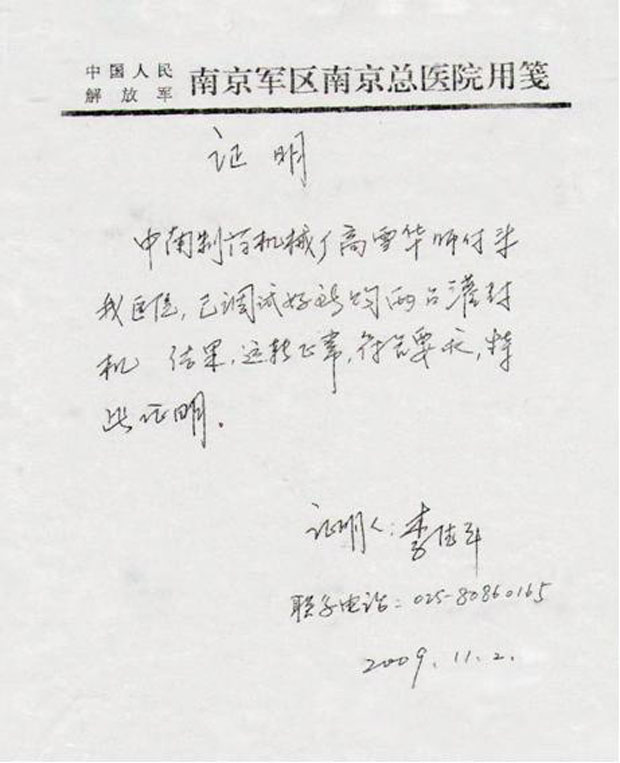 中国人民
解放军
南京军区南京总医院用笺
证明
中南制药机械厂高雪华师付来
我医院,已调试好我购两台灌封
机 结果,运转正常,符合要求,特
此证明.
证明人:李
联系电话:025-80860165
2009.11.2.